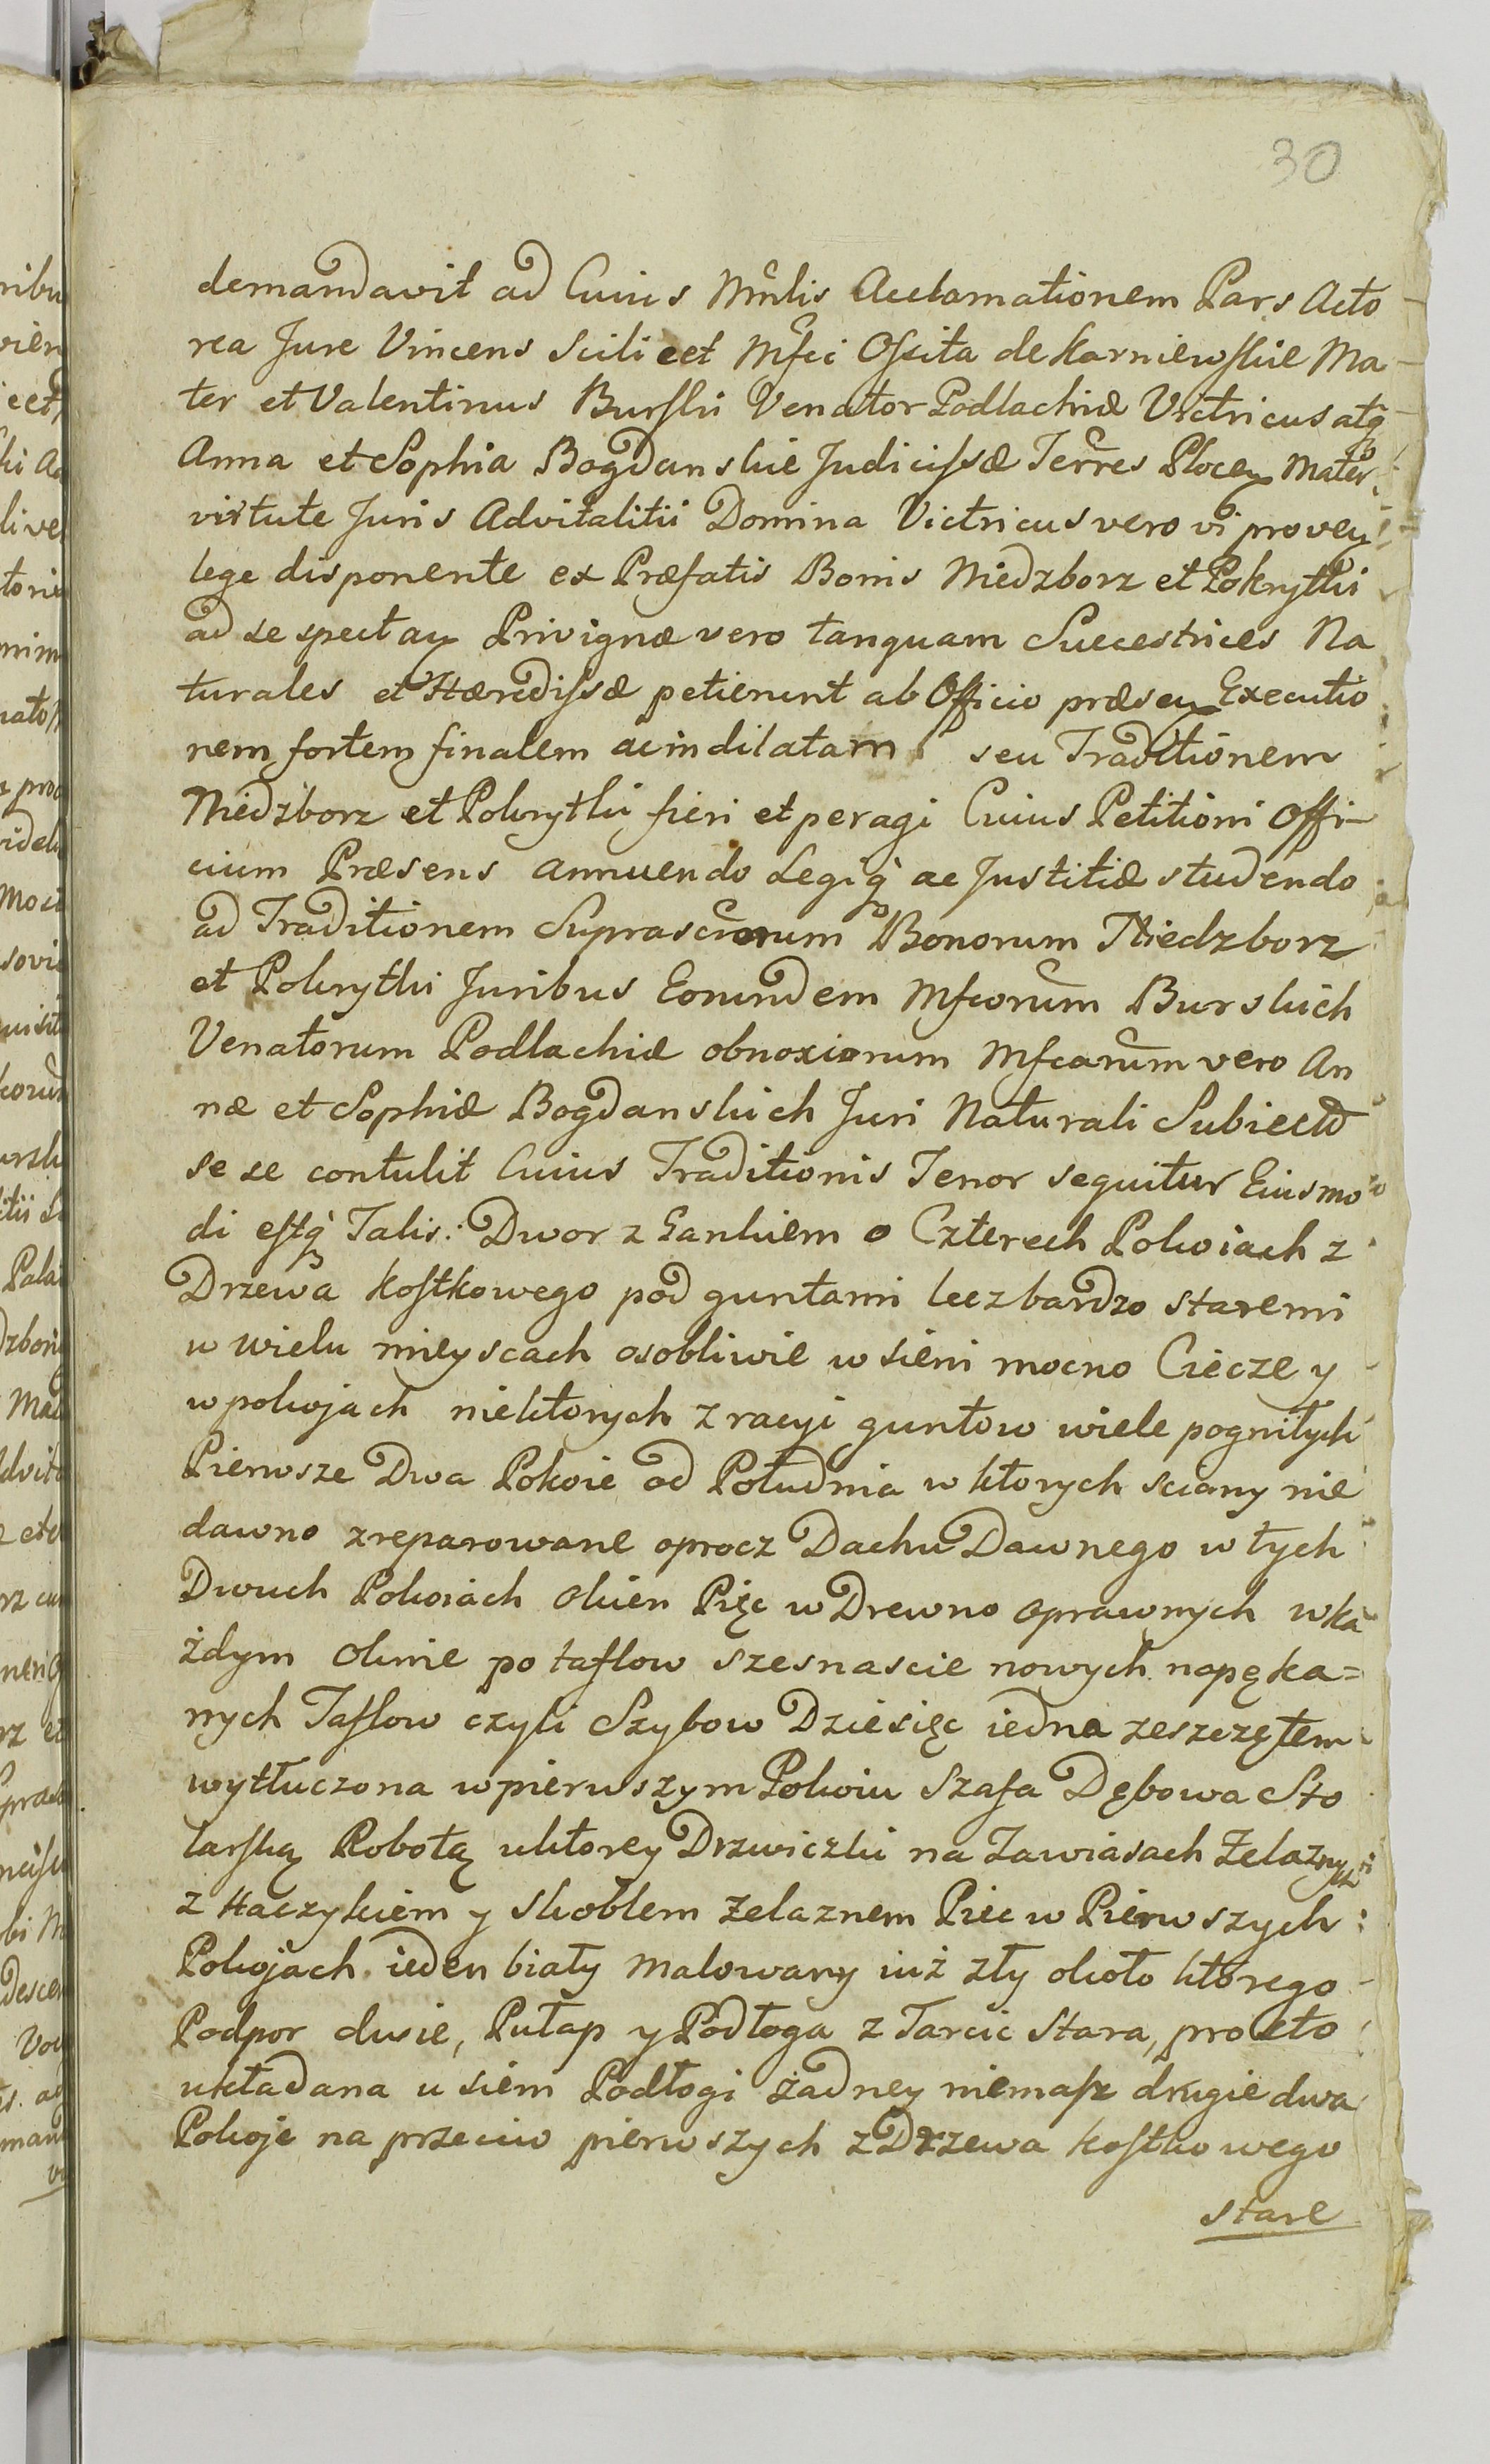 30
demandavit ad Cuius Mnlis Acclamationem Pars Acto
rea Jure Vincens Scilicet Mfci Osita de Karniewskie Ma
ter et Valentinus Burski Venator Podlachiæ Victricus atq
Anna et Sophia Bogdanskie Judicissæ Terres Plocen Mater
virtute Juris Advitalitii Domina Victricus vero vi proven
lege disponente ex Præfatis Bonis Niedzborz et Pokrytki
ad se spectan Privignæ vero tanquam Succestrices Na
turales et Hæredissæ petierunt ab Officio præsen Executio
nem fortem finalem ac indilatam seu Traditionem
Niedzborz et Pokrytki fieri et peragi Cuius Petitioni Offi-
cium Præsens annuendo Legiq ac Justitiæ studendo
ad Traditionem Suprascrorum Bonorum Niedzborz
et Pokrytki Juribus Eorundem Mfcorum Burskich
Venatorum Podlachiæ obnoxiorum Mfcarum vero An
næ et Sophiæ Bogdanskich Juri Naturali Subiecto
se se contulit Cuius Traditionis Tenor sequitur Eiusmo
di estq Talis: Dwor z Gankiem o Czterech Pokoiach z
Drzewa kostkowego pod guntami lecz bardzo staremi
w wielu mieyscach osobliwie w sieni mocno Ciecze y
w pokojach niektorych z racyi guntow wiele pogniłych
Pierwsze Dwa Pokoie od Południa w ktorych sciany nie
dawno zreparowane oprocz Dachu Dawnego w tych
Dwuch Pokoiach Okien Pięc w Drewno oprawnych w ka
żdym Oknie po taflow szesnascie nowych napęka=
nych Taflow czyli Szybow Dziesięc iedna zeszczętem
wytłuczona w pierwszym Pokoiu Szafa Dębowa Sto
larską Robotą uktorey Drzwiczki na Zawiasach Żelaznych
z Haczykiem y Skoblem Zelaznem Piec w Pierwszych
Pokojach ieden biały malowany iuż zły około ktorego
Podpor dwie, Pułap y Podłoga z Tarcic Stara, prosto
układana u sieni Podłogi żadney niemasz drugie dwa
Pokoje na przeciw pierwszych z Drzewa kostkowego
stare